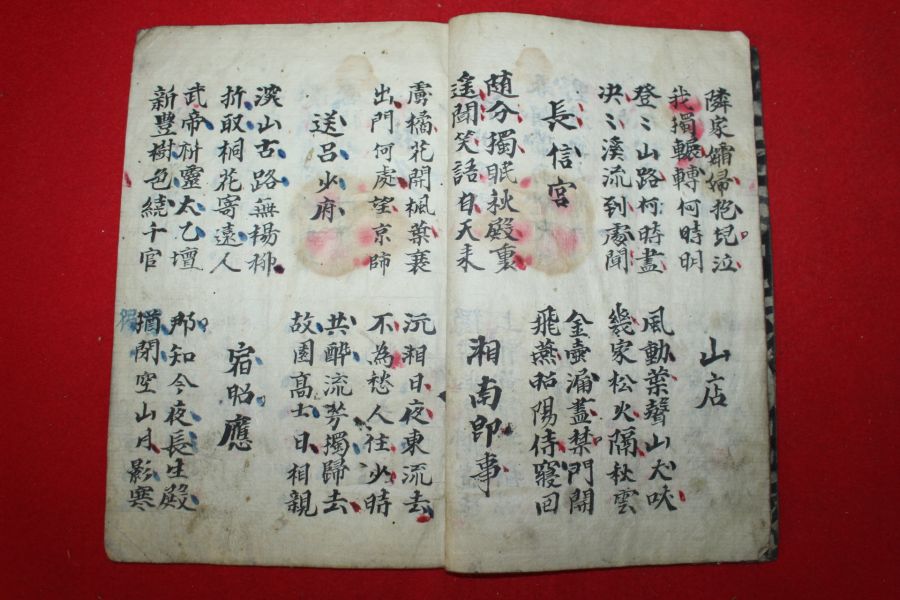 隣家孀婦抱兒泣
我獨轗轉何時明
山店
登〻山路柯時盡
决〻溪流到處聞
風動葉聲山犬吠
幾家松火隔秋雲
長信宮
金壺漏盡禁門開
飛燕昭陽侍寢回
随分獨眠秋殿裏
遥聞笑語自天来
湘南即事
虜橘花開楓葉衰
出門何處望京師
沅湘日夜東流去
不為愁人住少時
送呂少府
共醉流芳獨歸去
故園高士日相親
深山古路無楊柳
折取桐花寄遠人
宿昭應
武帝祈靈太乙壇
新豐樹色繞千官
那知今夜長生殿
獨閉空山月影寒